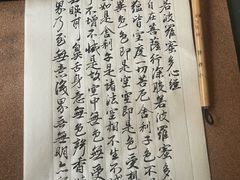 若波羅蜜多心經
自在菩薩行深般若波羅蜜多
蘊皆空度一切苦厄舍利子色不
異色色即是空空即是色受想
如是舍利子是諸法空相不生不
不增不減是故空中無色無受
眼耳鼻舌身意無色聲香
界乃至無意識界無無明